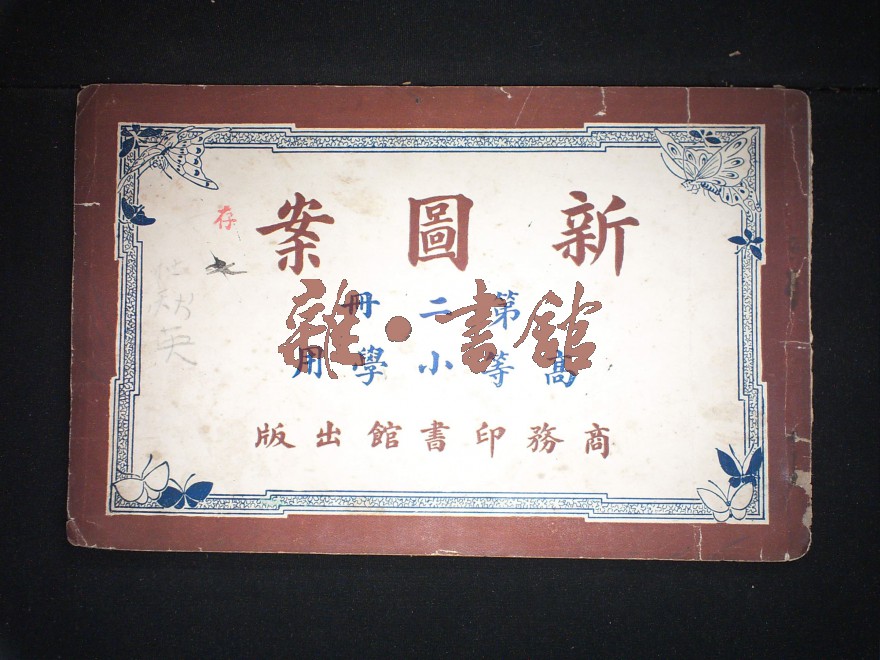 新圖案
存
第二冊
雜·書館
高等小學用
商務印書館出版